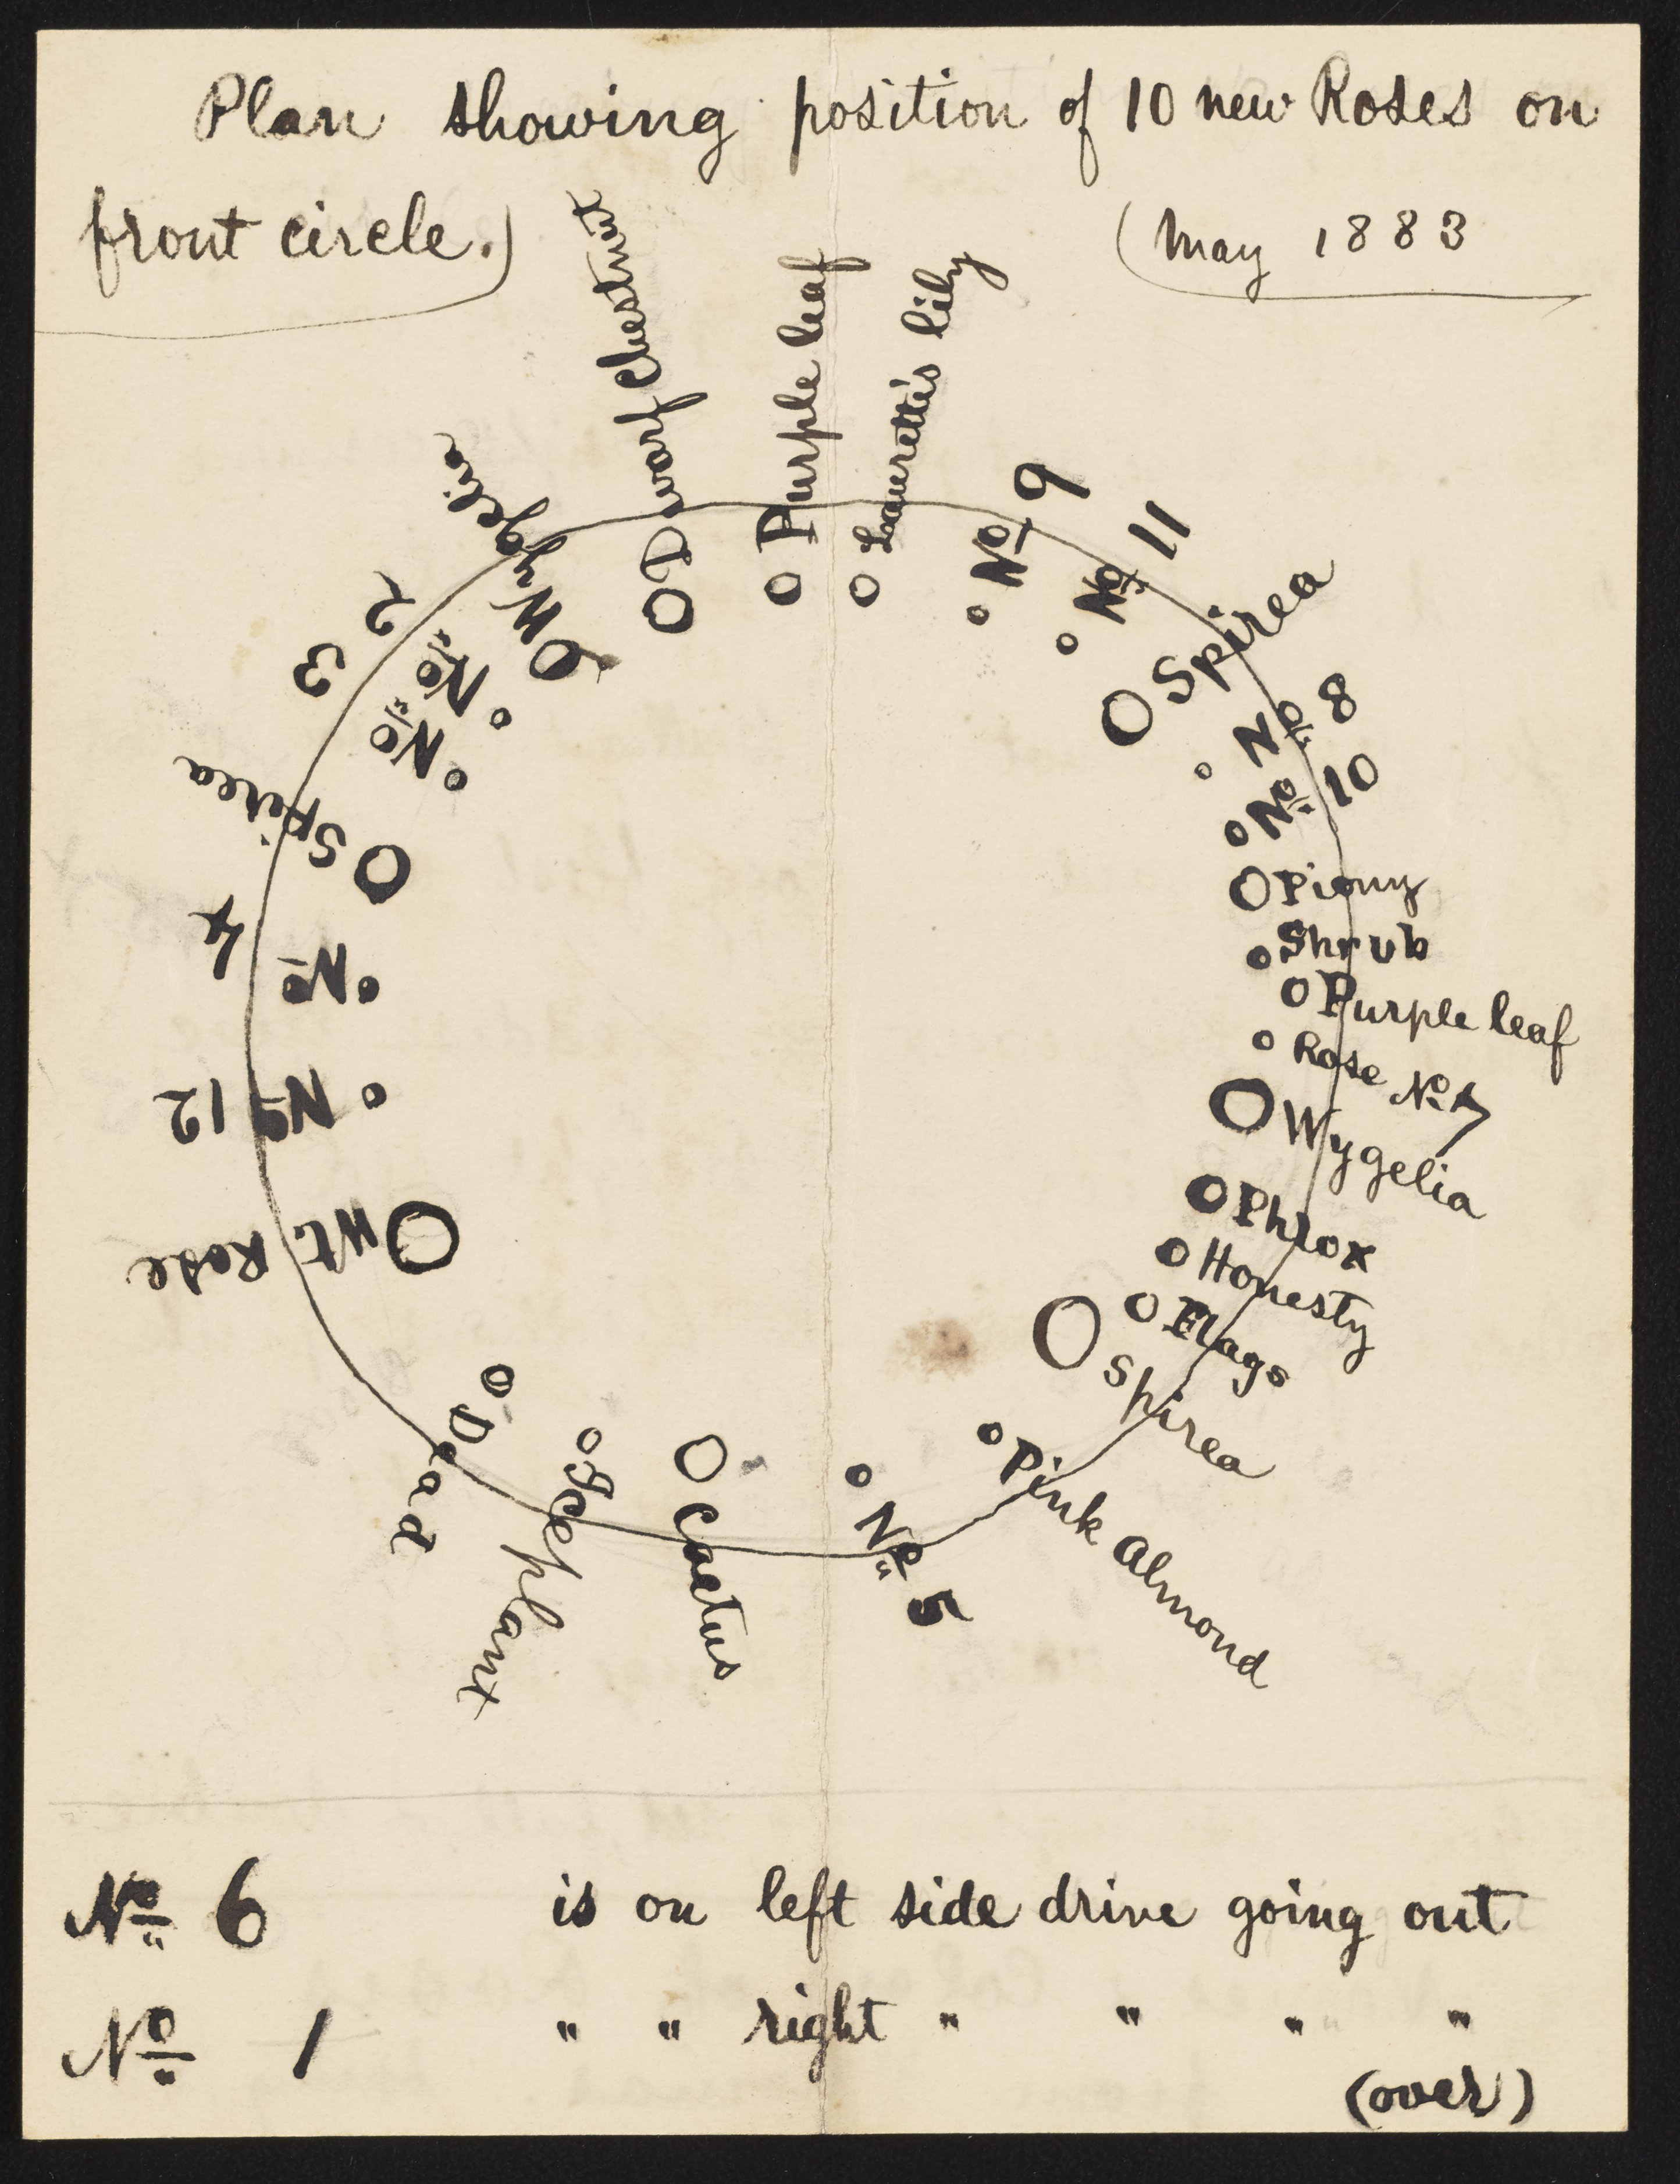 Plan showing position of 10 new Roses on
front circle.)
(May 1883
Dwarf Chestnut
Purple leaf
Lauretti's lily
No 9
No 11
Spirea
No 8
No 10
Piony
Shrub
Purple leaf
Rose No 7
Wygelia
Phlox
Honesty
Flags
Spirea
Pink Almond
No 5
Cactus
Ice plant
Dead
Wt. Rose
No 12
No 4
Spirea
No 3
No 2
Wygelia
No 6 is on left side drive going out
No 1 " " right " " " "
(over)